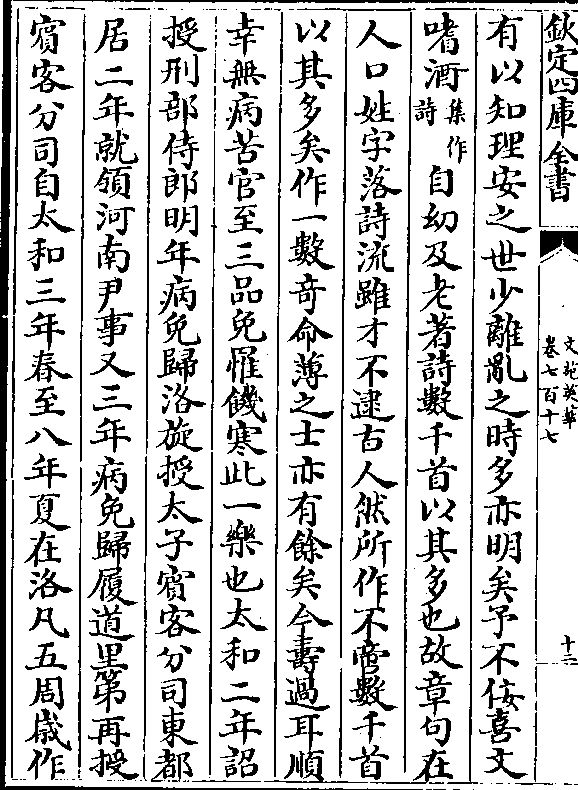 欽定四庫全書
文苑英華
卷七百十七
十二
有以知理安之世少離亂之時多亦明矣予不佞喜文
嗜酒集作詩自幼及老著詩數千首以其多也故章句在
人口姓字落詩流雖才不逮古人然所作不啻數千首
以其多矣作一數奇命薄之士亦有餘矣今壽過耳順
幸無病苦官至三品免罹饑寒此一樂也太和二年詔
授刑部侍郎明年病免歸洛旋授太子賔客分司東都
居二年就領河南尹事又三年病免歸履道里第再授
賔客分司自太和三年春至八年夏在洛凡五周歲作